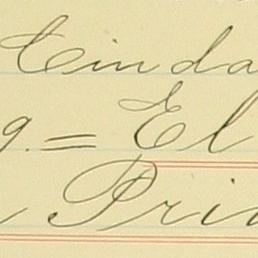 Cinda
g. = El
Pri